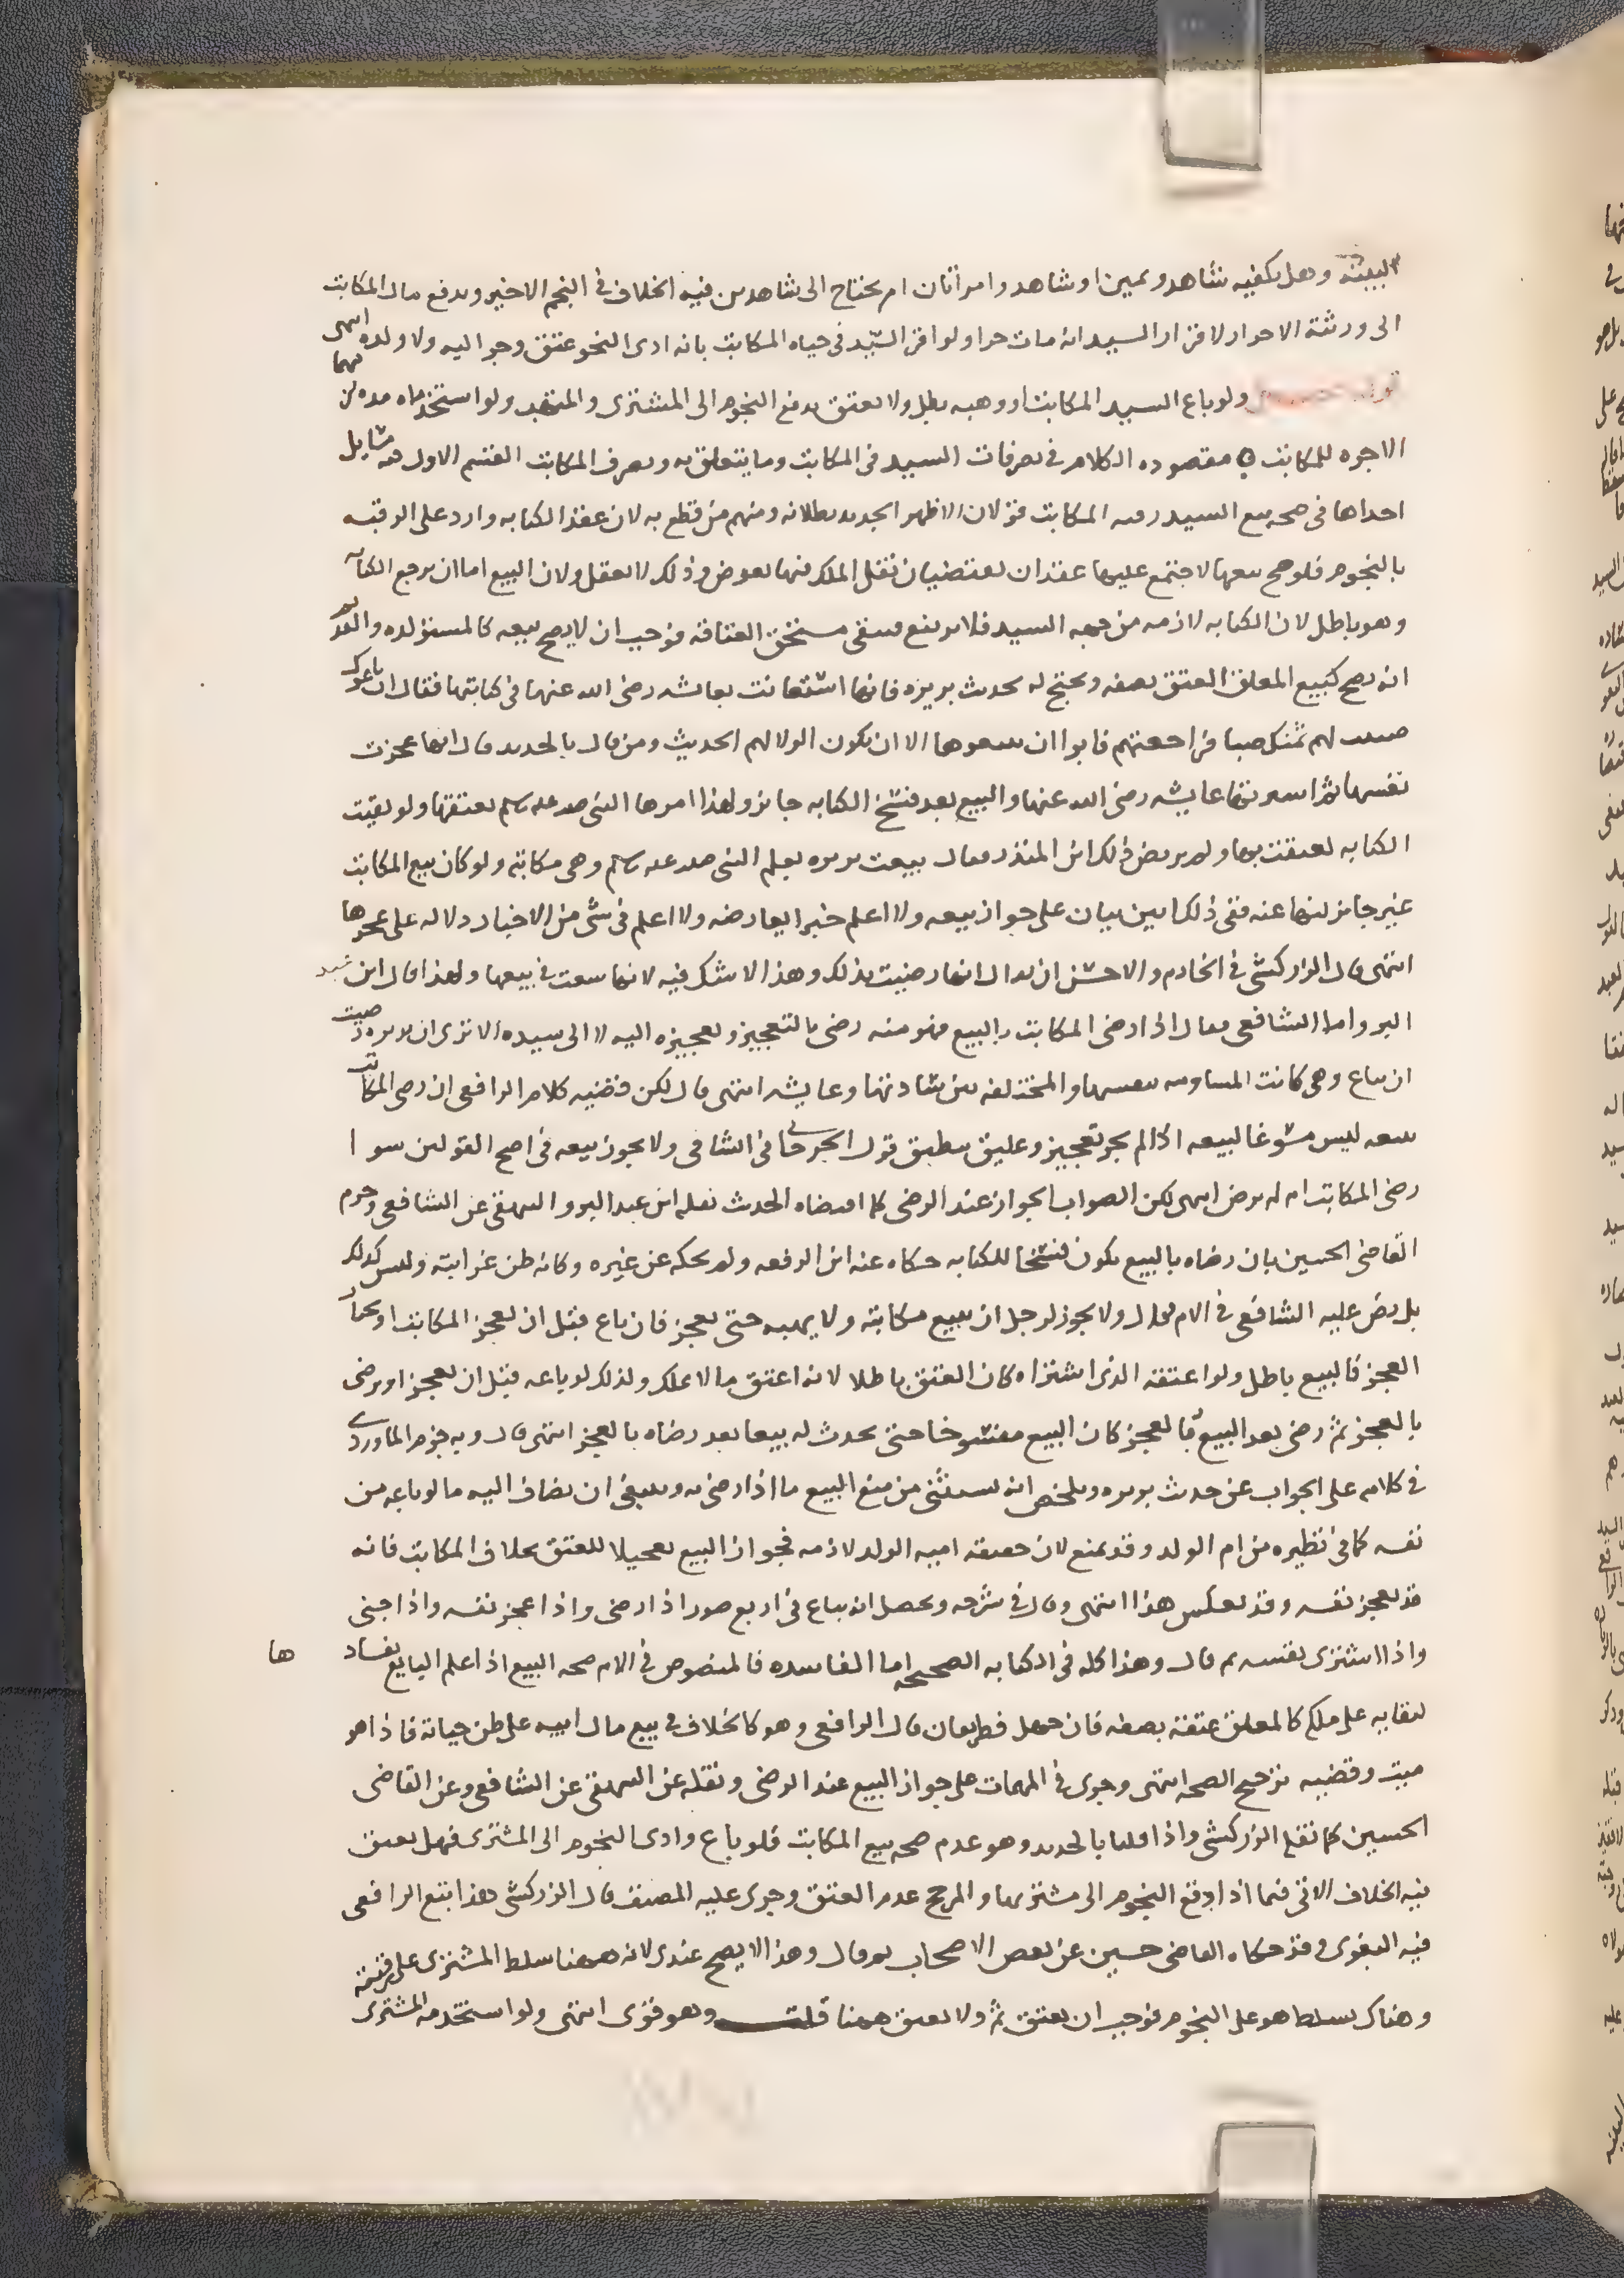 البينة وهل يكفيه شاهد ويمين او شاهد وامرأتان ام يحتاج الى شاهدين فيه الخلاف في النجم الاخير ويدفع مال المكاتب
الى ورثته الاحرار لاقرار السيد انه مات حرا ولو اقر السيد في حياه المكاتب بانه ادى النجوم عتق وجر اليه ولا ولده انتهى
ولو باع السيد المكاتب او وهبه بطل ولا يعتق بدفع النجوم الى المشترى والمتهب ولو استخدماه مده لزمهما
الاجره للمكاتب مقصوده الكلام في تصرفات السيد في المكاتب وما يتعلق به وتصرف المكاتب القسم الاول فيه مسايل
احداها في صحه بيع السيد رقبه المكاتب قولان الاظهر الجديد بطلانه ومنهم من قطع به لان عقد الكتابه وارد على الرقبه
بالنجوم فلو صح بيعها لاجتمع عليها عقدان يقتضيان نقل الملك فيها بعوض وذلك لا يعقل ولان البيع اما ان يرفع الكتابه
وهو باطل لان الكتابه لازمه من جهه السيد فلا يرتفع فيبقى مستحق العتاقه فوجب ان لا يصح بيعه كالمستولده والقديم
انه يصح كبيع المعلق العتق بصفه ويحتج له بحديث بريره فانها استعانت بعايشه رضى الله عنها في كتابتها فقال ان باعوك
صببت لهم ثمنك صبا فراجعتهم فابوا ان يبيعوها الا ان يكون الولا لهم الحديث ومن قال بالجديد قال انها عجزت
نفسها ثم اشترتها عايشه رضى الله عنها والبيع بعد فسخ الكتابه جايز ولهذا امرها النبي صلى الله عليه وسلم بعتقها ولو بقيت
الكتابه لعتقت بها ولم يرتض ذلك ابن المنذر وقال بيعت بريره بعلم النبي صلى الله عليه وسلم وهى مكاتبه ولو كان بيع المكاتب
غير جايز لنها عنه ففى ذلك ابين بيان على جواز بيعه ولا اعلم خبرا يعارضه ولا اعلم في شى من الاخبار دلاله على عجزها
انتهى قال الزركشى في الخادم والاحسن ان يقال انها رضيت بذلك وهذا لا شك فيه لانها سعت في بيعها ولهذا قال ابن عبد
البر واما الشافعى فقال اذا رضى المكاتب بالبيع فهو منه رضى بالتعجيز وتعجيزه اليه لا الى سيده الا ترى ان بريره رضيت
ان تباع وهى كانت المساومه بنفسها والمختلفه بين سادتها وعايشه انتهى قال لكن قضيه كلام الرافعى ان رضى المكاتب
ببيعه ليس مسوغا لبيعه اذا لم يجر تعجيز وعليه ينطبق قول الجرجاني في الشافى ولا يجوز بيعه في اصح القولين سوا
رضى المكاتب ام لم يرض انتهى لكن الصواب الجواز عند الرضى كما اقتضاه الحديث نقله ابن عبد البر والبيهقى عن الشافعى وجزم
القاضى الحسين بان رضاه بالبيع يكون فسخا للكتابه حكاه عنه ابن الرفعه ولم يحكه عن غيره وكانه ظن غرابته وليس كذلك
بل نص عليه الشافعى في الام فقال ولا يجوز لرجل ان يبيع مكاتبه ولا يهبه حتى يعجز فان باع قبل ان يعجز المكاتب او يختار
العجز فالبيع باطل ولو اعتقه الذى اشتراه كان العتق باطلا لانه اعتق ما لا يملك ولذلك لو باعه قبل ان يعجز او يرضى
بالعجز ثم رضى بعد البيع بالعجز كان البيع مفسوخا حتى يحدث له بيعا بعد رضاه بالعجز انتهى قال وبه جزم الماوردى
في كلامه على الجواب عن حديث بريره ويلخص انه يستثنى من منع البيع ما اذا رضى به وينبغى ان يضاف اليه ما لو باعه من
نفسه كما في نظيره من ام الولد وقد يمنع لان حقيقه اميه الولد لازمه فجواز البيع تعجيلا للعتق بخلاف المكاتب فانه
قد يعجز نفسه وقد يعكس هذا انتهى وقال في شرحه ويحصل انه يباع في اربع صور اذا رضى واذا عجز نفسه واذا جنى
واذا اشترى نفسه ثم قال وهذا كله في الكتابه الصحيحه اما الفاسده فالمنصوص في الام صحه البيع اذا علم البايع بفسادها
لبقايه على ملكه كالمعلق عتقه بصفه فان جهل فطريقان قال الرافعى وهو كالخلاف في بيع مال ابيه على ظن حياته فاذا هو
ميت وقضيته ترجيح الصحه انتهى وجرى في المهمات على جواز البيع عند الرضى ونقله عن البيهقى عن الشافعى وعن القاضى
الحسين كما نقله الزركشى واذا قلنا بالجديد وهو عدم صحه بيع المكاتب فلو باع وادى النجوم الى المشترى فهل يعتق
فيه الخلاف الاتى فيما اذا دفع النجوم الى مشتريها والمرجح عدم العتق وجرى عليه المصنف قال الزركشى هذا تبع الرافعى
فيه البغوى وقد حكاه القاضى حسين عن بعض الاصحاب ثم قال وهذا لا يصح عندى لانه ههنا سلط المشترى على رقبته
وهناك سلطه هو على النجوم فوجب ان يعتق ثم ولا يعتق ههنا قلت وهو قوى انتهى ولو استخدمه المشترى